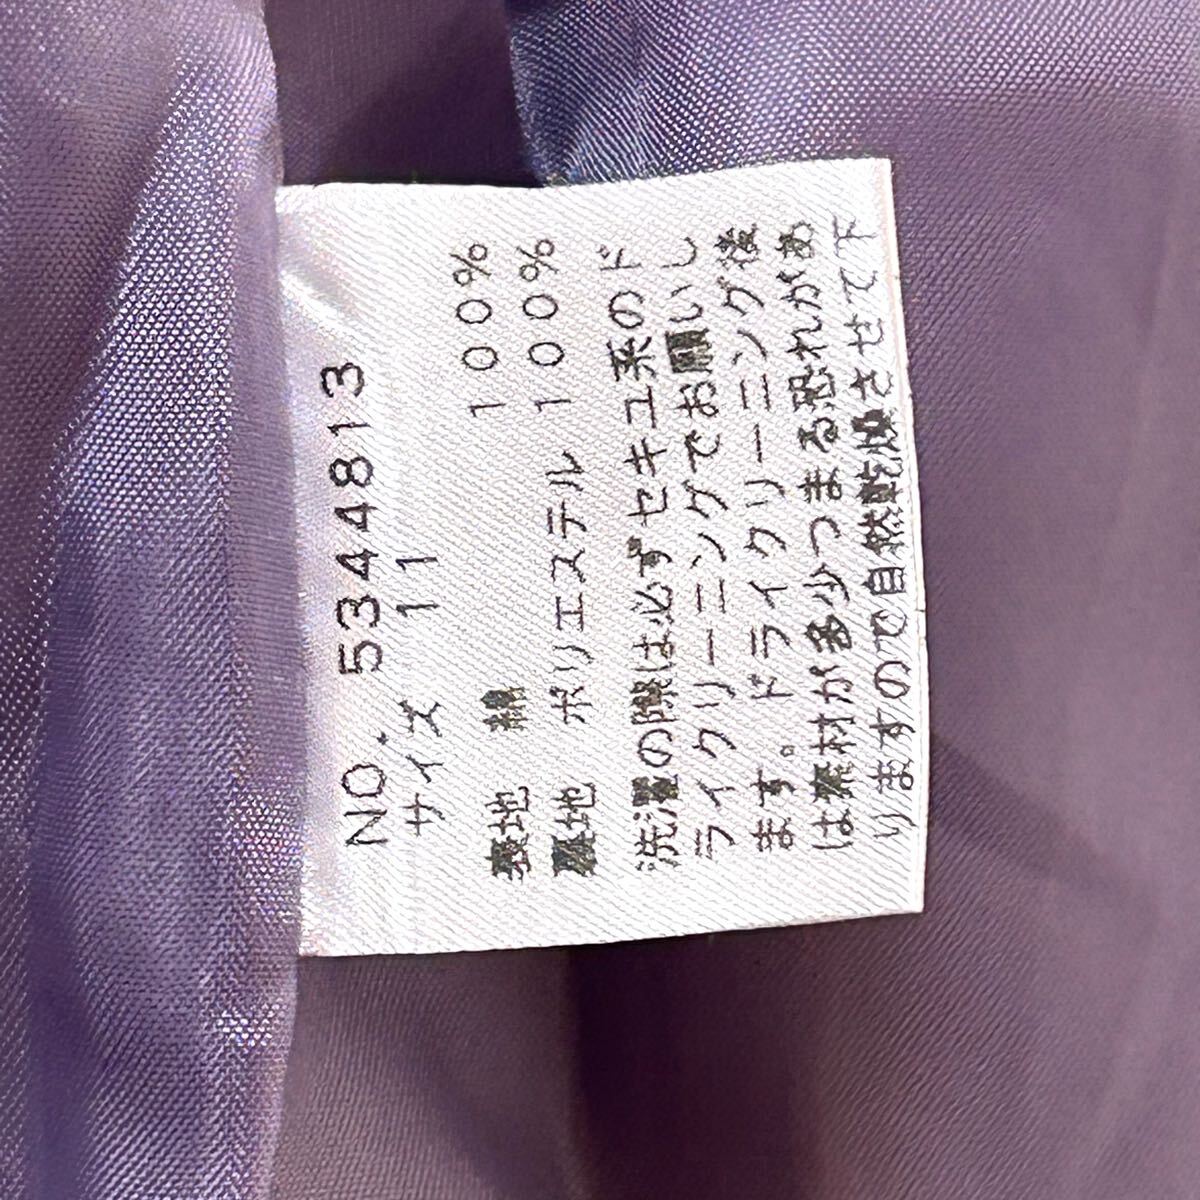 NO. 5344813
サイズ 11
表地 綿 100%
裏地 ポリエステル 100%
洗濯の際は必ずセキユ系のド
ライクリーニングでお願いし
ます。ドライクリーニング後
は素材が多少つまる恐れがあ
りますので自然乾燥させて下